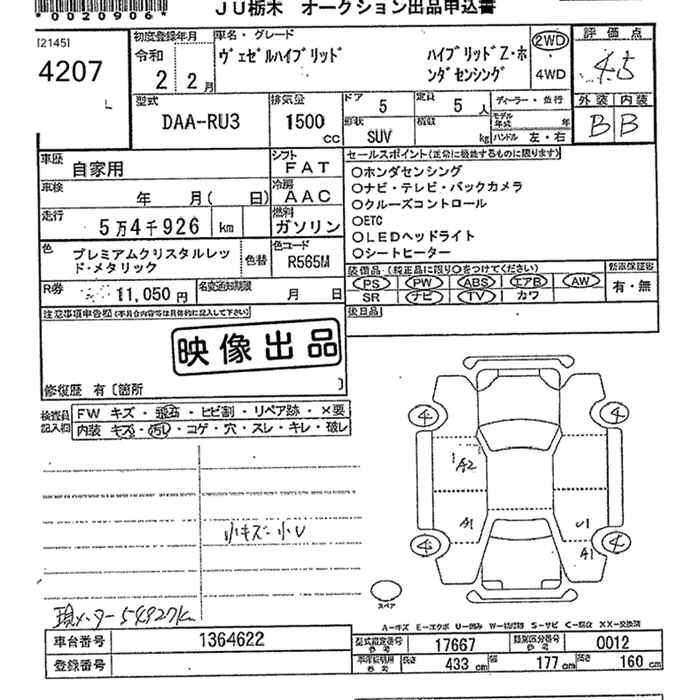 *0020906*
JU栃木 オークション出品申込書
[2145]
4207
初度登録年月
令和
2 2月
車名・グレード
ヴェゼルハイブリッド
ハイブリッドZ・ホ
ンダセンシング
2WD
4WD
評価点
4.5
外装 内装
B B
型式
DAA-RU3
排気量
1500
cc
ドア
5
定員
5 人
形状
SUV
積載
kg
ディーラー・並行
モデル年式 年
ハンドル 左・右
車歴
自家用
シフト
FAT
車検
年 月( 日)
冷房
AAC
走行
5万4千926 km
燃料
ガソリン
色
プレミアムクリスタルレッ
ド・メタリック
色替
色コード
R565M
R券
11,050円
名変通知期限
月 日
セールスポイント(正常に機能するものに限ります)
○ホンダセンシング
○ナビ・テレビ・バックカメラ
○クルーズコントロール
○ETC
○LEDヘッドライト
○シートヒーター
装備品(純正品に限り○をつけてください)
PS PW ABS エアB AW
SR ナビ TV カワ
新車保証書
有・無
後日品
注意事項申告欄
映像出品
修復歴 有〔箇所 〕
検査員
記入欄
FW キズ・飛石・ヒビ割・リペア跡・×要
内装 キズ・汚レ・コゲ・穴・スレ・キレ・破レ
小キズ小U
現メーター54927km
4 4
A2
A1 U1
4 A1 4
スペア
A-キズ E-エクボ U-凹み W-波打跡 S-サビ C-腐食 XX-交換済
車台番号
1364622
登録番号
型式指定番号
参考
17667
類別区分番号
参考
0012
長さ 433 cm
幅 177 cm
高さ 160 cm